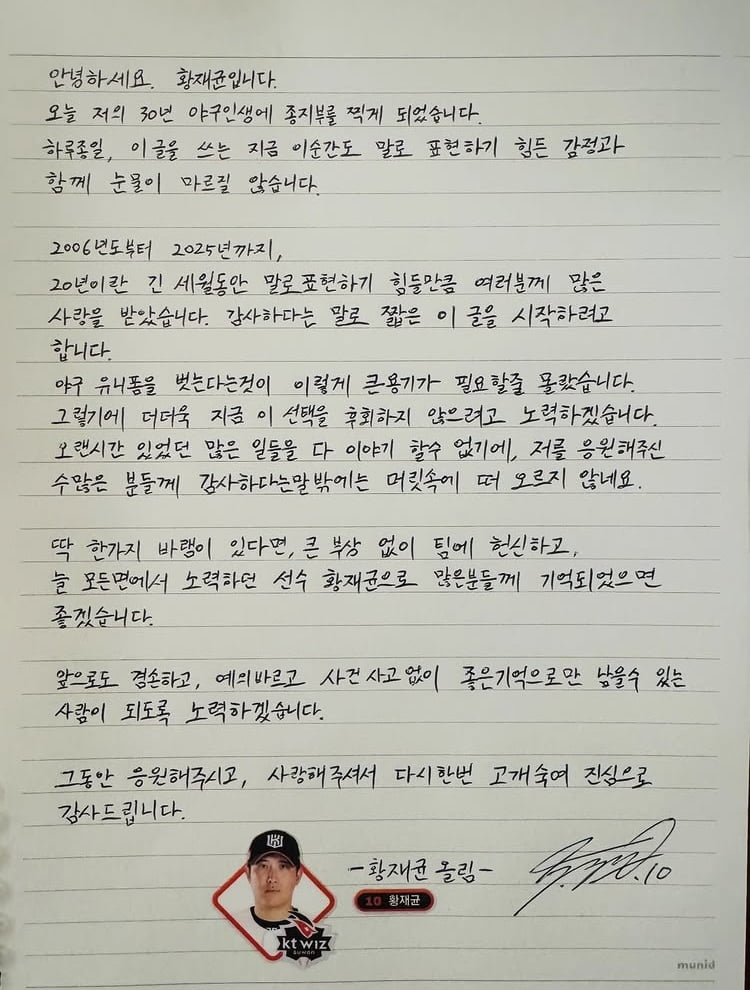 안녕하세요. 황재균입니다.
오늘 저의 30년 야구인생에 종지부를 찍게 되었습니다.
하루종일, 이 글을 쓰는 지금 이순간도 말로 표현하기 힘든 감정과
함께 눈물이 마르질 않습니다.
2006년도부터 2025년까지,
20년이란 긴 세월동안 말로표현하기 힘들만큼 여러분께 많은
사랑을 받았습니다. 감사하다는 말로 짧은 이 글을 시작하려고
합니다.
야구 유니폼을 벗는다는것이 이렇게 큰용기가 필요할줄 몰랐습니다.
그렇기에 더더욱 지금 이 선택을 후회하지 않으려고 노력하겠습니다.
오랜시간 있었던 많은 일들을 다 이야기 할수 없기에, 저를 응원해주신
수많은 분들께 감사하다는말밖에는 머릿속에 떠 오르지 않네요.
딱 한가지 바램이 있다면, 큰 부상 없이 팀에 헌신하고,
늘 모든면에서 노력하던 선수 황재균으로 많은분들께 기억되었으면
좋겠습니다.
앞으로도 겸손하고, 예의바르고 사건 사고 없이 좋은기억으로만 남을수 있는
사람이 되도록 노력하겠습니다.
그동안 응원해주시고, 사랑해주셔서 다시한번 고개숙여 진심으로
감사드립니다.
-황재균 올림- .10
10 황재균
kt wiz
suwon
munid